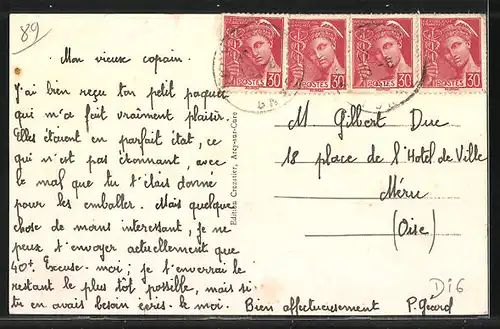 89
Mon vieux copain.
J'ai bien reçu ton petit paquet
qui m'a fait vraiment plaisir.
Elles étaient en parfait état, ce
qui n'est pas étonnant avec
le mal que tu t'étais donné
pour les emballer. Mais quelque
chose de moins interessant, je ne
peux t'envoyer actuellement que
40f. Excuse-moi; je t'enverrai le
restant le plus tôt possible, mais si
tu en avais besoin écris-le moi. Bien affectueusement P. Gérard
Edition Crezatier, Arcy-sur-Cure
POSTES 30
POSTES 30
POSTES 30
POSTES 30
M Gilbert Duc
18 place de l'Hotel de Ville
Méru
(Oise)
D16